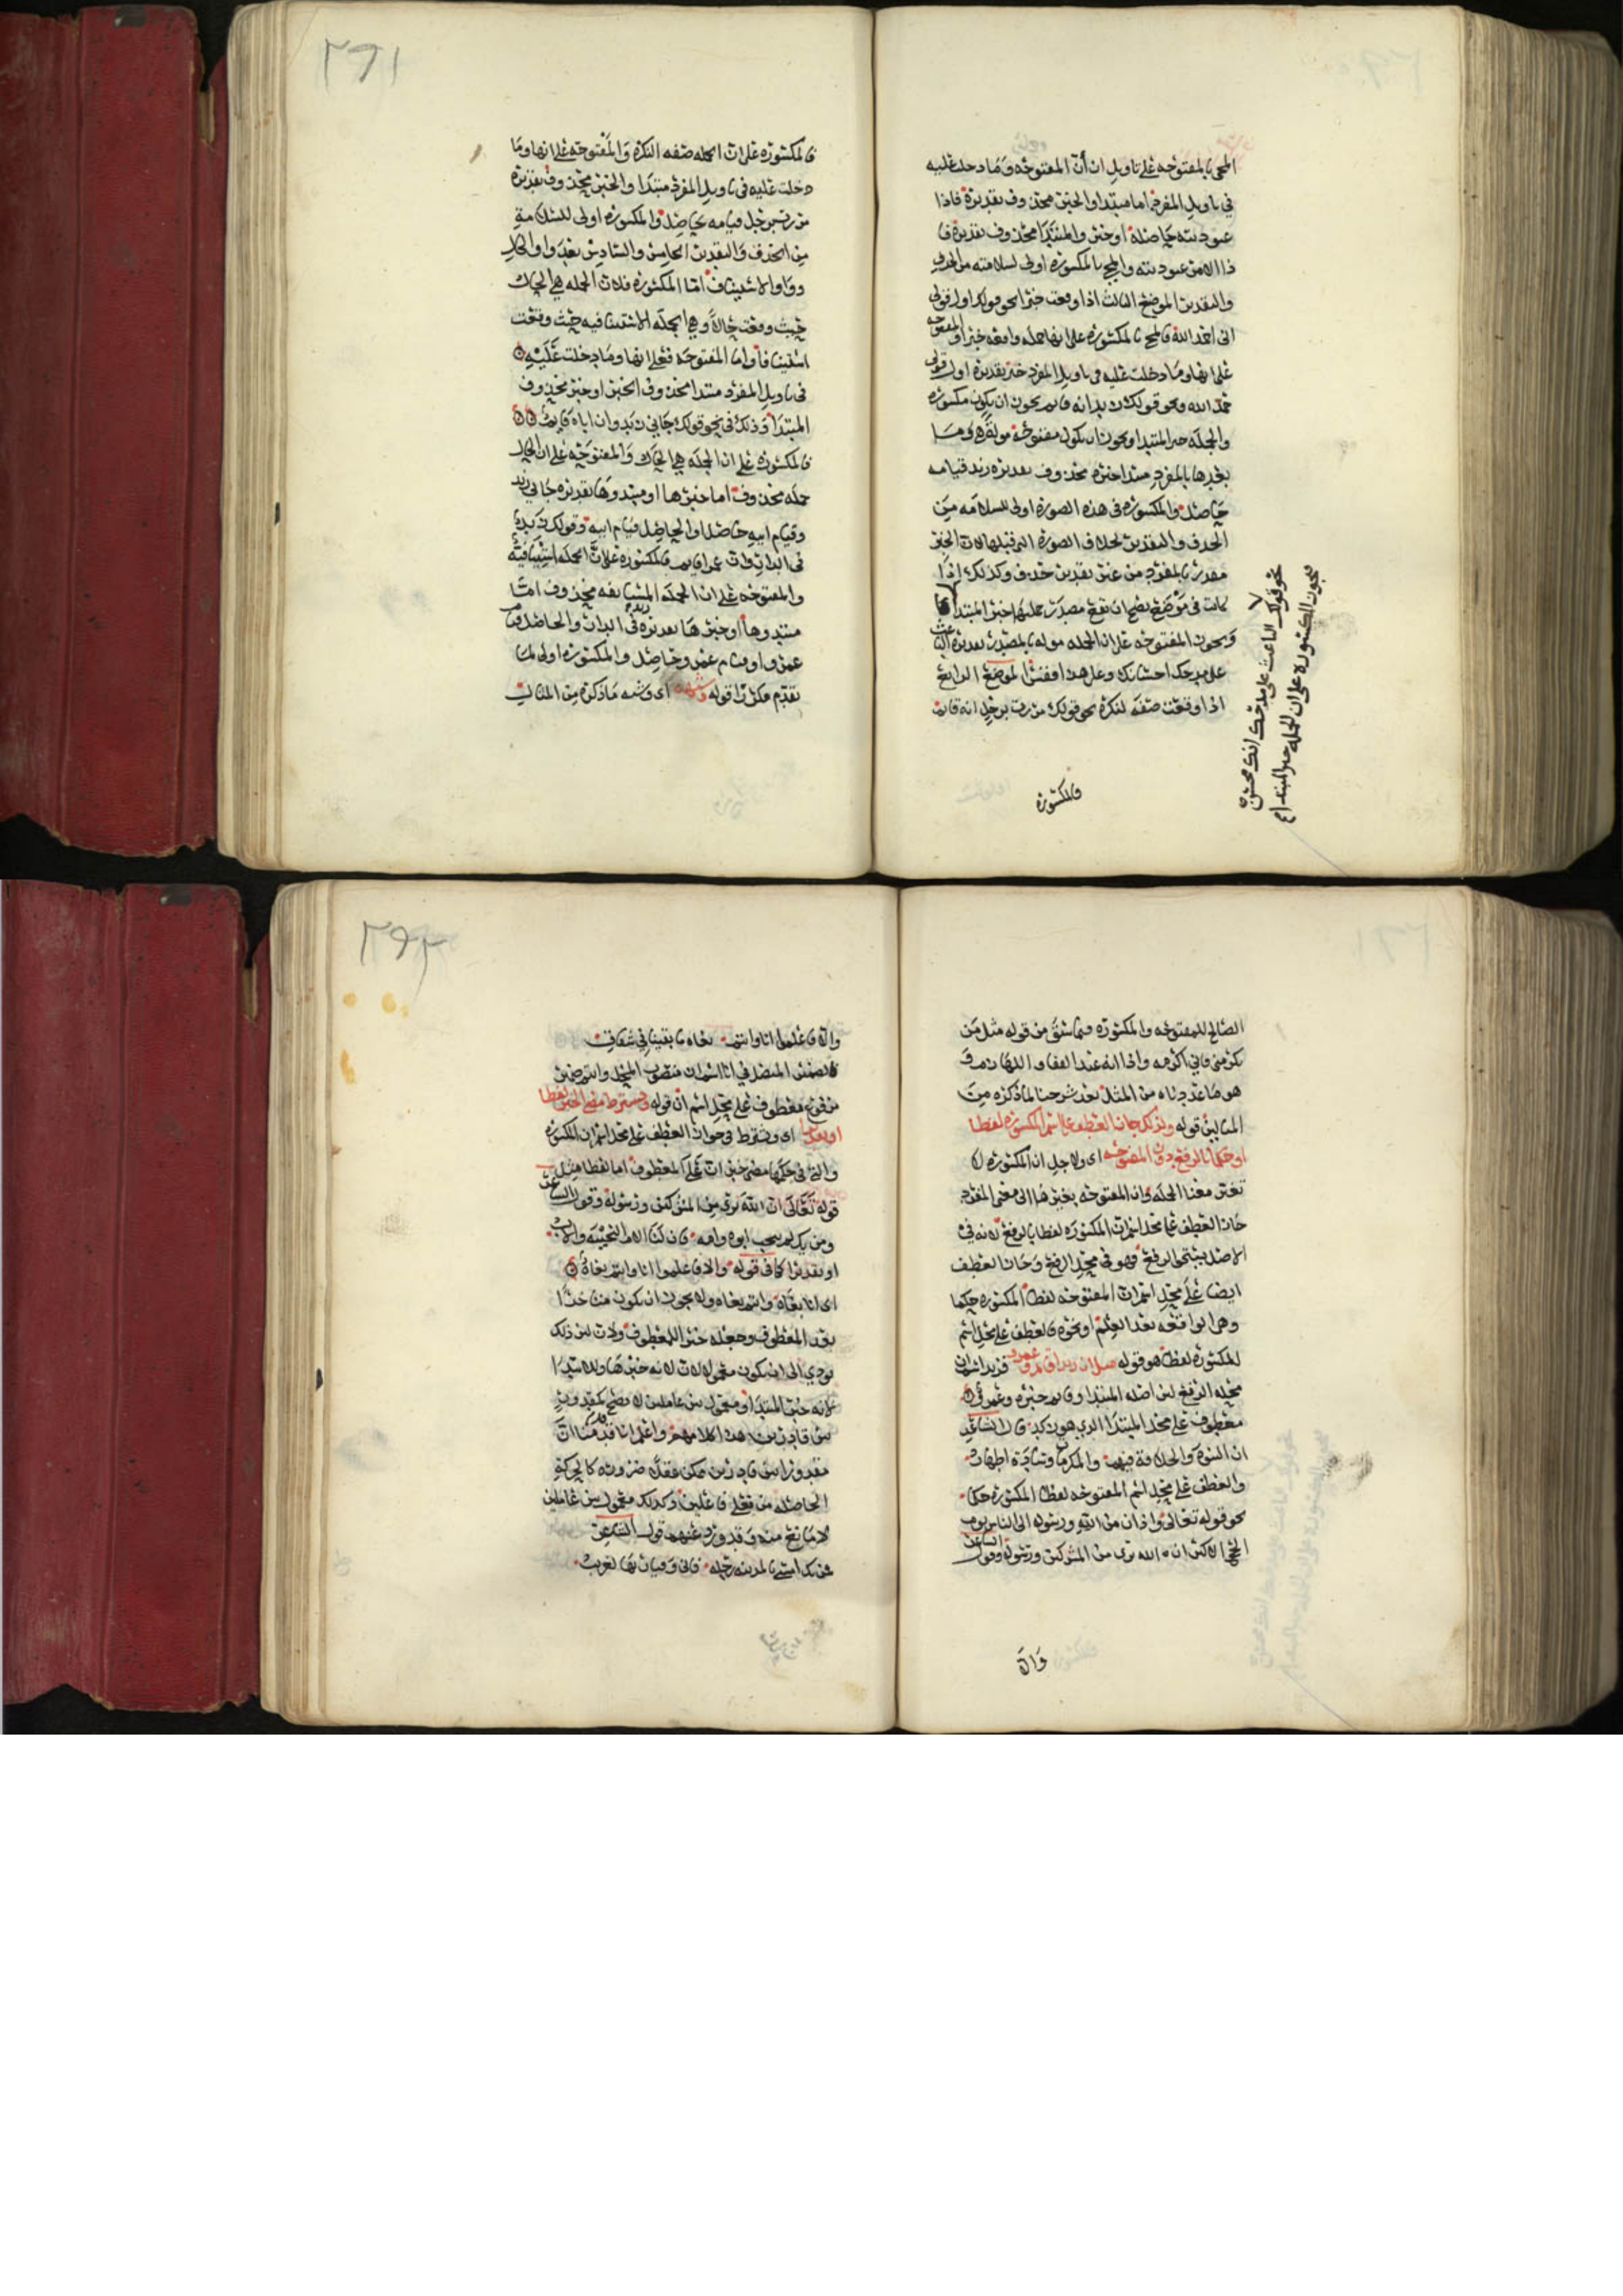 المجي بالمفتوحه على تاويل ان أنّ المفتوحه وما دخلت عليه
في تاويل المفرد اما مبتدا والخبر محذوف تقديره فاذا
عبوديته حاصلة او خبر والمبتدا محذوف تقديره فا
ذا الامر عبوديته والمجي بالمكسوره اولى لسلامته من الحذف
والتقدير الموضع الثالث اذا وقعت خبرا نحو قولك اول قولي
اني احمد الله فالمجي بالمكسوره على انها جمله واقعه خبرا والمفتوحه
على انها وما دخلت عليه في تاويل المفرد خبر تقديره اول قولي
حمد الله ونحو قولك زيد انه قايم يجوز ان يكون مكسوره
والجمله خبر المبتدا ويجوز ان يكون مفتوحه مولة هي وما
بعدها بالمفرد مبتدا خبره محذوف تقديره زيد قيامه
حاصل والمكسوره في هذه الصوره اولى للسلامه من
الحذف والتقدير بخلاف الصوره التي قبلها لان الخبر
مقدر بالمفرد من غير تقدير حذف وكذلك اذا
كانت في موضع يصح ان تقع مصدر جملها خبر المبتدا
ويجوز المفتوحه على ان الجمله موله بالمصدر تقديره الباعث
على مدحك احسانك وعلى هذا فقس الموضع الرابع
اذا وقعت صفه لنكره نحو قولك مررت برجل انه قايم
نحو قولك الباعث على مدحك انك محسن
يجوز المكسوره على ان الجمله خبر المبتدا
فالمكسوره
٣٩١
فالمكسوره على ان الجمله صفه النكره والمفتوحه على انها وما
دخلت عليه في تاويل المفرد مبتدا والخبر محذوف تقديره
مررت برجل قيامه حاصل والمكسوره اولى للسلامة
من الحذف والتقدير الخامس والسادس بعد واو الحال
وواو الاستيناف اما المكسوره فلان الجمله هي الحال
حيث وقعت حالاً وهي الجمله الاستينافيه حيث وقعت
استينافا واما المفتوحه فعلى انها وما دخلت عَلَيْهِ
في تاويل المفرد مبتدا محذوف الخبر او خبر محذوف
المبتدا وذلك في نحو قولك جاني زيد وان اباه قايم
فالمكسوره على ان الجمله هي الحال والمفتوحه على ان الحال
جمله محذوف اما خبرها او مبتدوها تقديره جاني زيد
وقيام ابيه حاصل او الحاصل قيام ابيه وقولك زيد
في الدار وان عمرا قايم فالمكسوره على ان الجمله استينافيه
والمفتوحه على ان الجمله المستانفه محذوف اما
مبتدوها او خبرها تقديره زيد في الدار والحاصل قيام
عمرو او قيام عمرو حاصل والمكسوره اولى لما
تقدم مكررا قوله وشبهه اى وشبه ما ذكره من المثالين
الصالح للمفتوحه والمكسوره فيما سبق من قوله مثل من
يكرمني فاني اكرمه واذا انه عبد القفا واللهازم ف
هو ما عددناه من المثل بعد شرحنا لما ذكره من
المثالين قوله ولذلك جاز العطف على اسم المكسوره لفظا
او حكما بالرفع دون المفتوحه اى ولاجل ان المكسوره لا
تغير معنا الجمله وان المفتوحه يغيرها الى معنى المفرد
جاز العطف على محل اسم ان المكسوره لفظا بالرفع لانه في
الاصل يستحق الرفع فهو في محل الرفع وجاز العطف
ايضا على محل اسم ان المفتوحه لفظا المكسوره حكما
وهي الواقعه بعد العلم او نحوه فالعطف على محل اسم
المكسوره لفظا هو قوله مثل ان زيدا قايم وعمرو فزيد اسم ان
محله الرفع لان اصله المبتدا وقايم خبره وعمرو
معطوف على محل المبتدا الذي هو زيد قال الشاعر
ان النبوه والخلافة فيهم والمكرمات وسادة اطهار
والعطف على محل اسم المفتوحه لفظا المكسوره حكما
نحو قوله تعالى واذان من الله ورسوله الى الناس يوم
الحج الاكبر ان الله بري من المشركين ورسوله وقول الشاعر
والا
٣٩٢
والا فاعلموا انا وانتم بغاه ما بقينا في شقاق
فالضمير المتصل في انا اسم ان منصوب المحل وانتم ضمير
مرفوع معطوف على محل اسم ان قوله ويشترط مضي الخبر لفظا
او تقديرا اى ويشترط في جواز العطف على محل اسم ان المكسوره
والتي في حكمها مضي خبر ان على المعطوف اما لفظا مثل
قوله تَعَالَى ان الله بري من المشركين ورسوله وقول الشاعر
ومن يك لم ينجب ابوه وامه فان لنا الام النجيبه والاب
او تقديرا كما في قوله والا فاعلموا انا وانتم بغاه
اى انا بغاه وانتم بغاه ولا يجوز ان يكون متاخرا
بعد المعطوف وجعله خبر اللمعطوف ولان ليس ذلك
يودي الى ان يكون معمولا لان لانه خبرها وللابتدا
لانه خبر المبتدا ومعمول بين عاملين لا يصح كمقدور
بين قادرين هذا كلامهم واعلم انا قد قدمنا ان
مقدورا بين قادرين ممكن عقلا ضروره كالحركة
الحاصله من فعل فاعلين وكذلك معمول بين عاملين
لا مانع منه وقد ورد عنهم قول الشاعر
فمن يك امسى بالمدينه رحله فاني وقيار بها لغريب